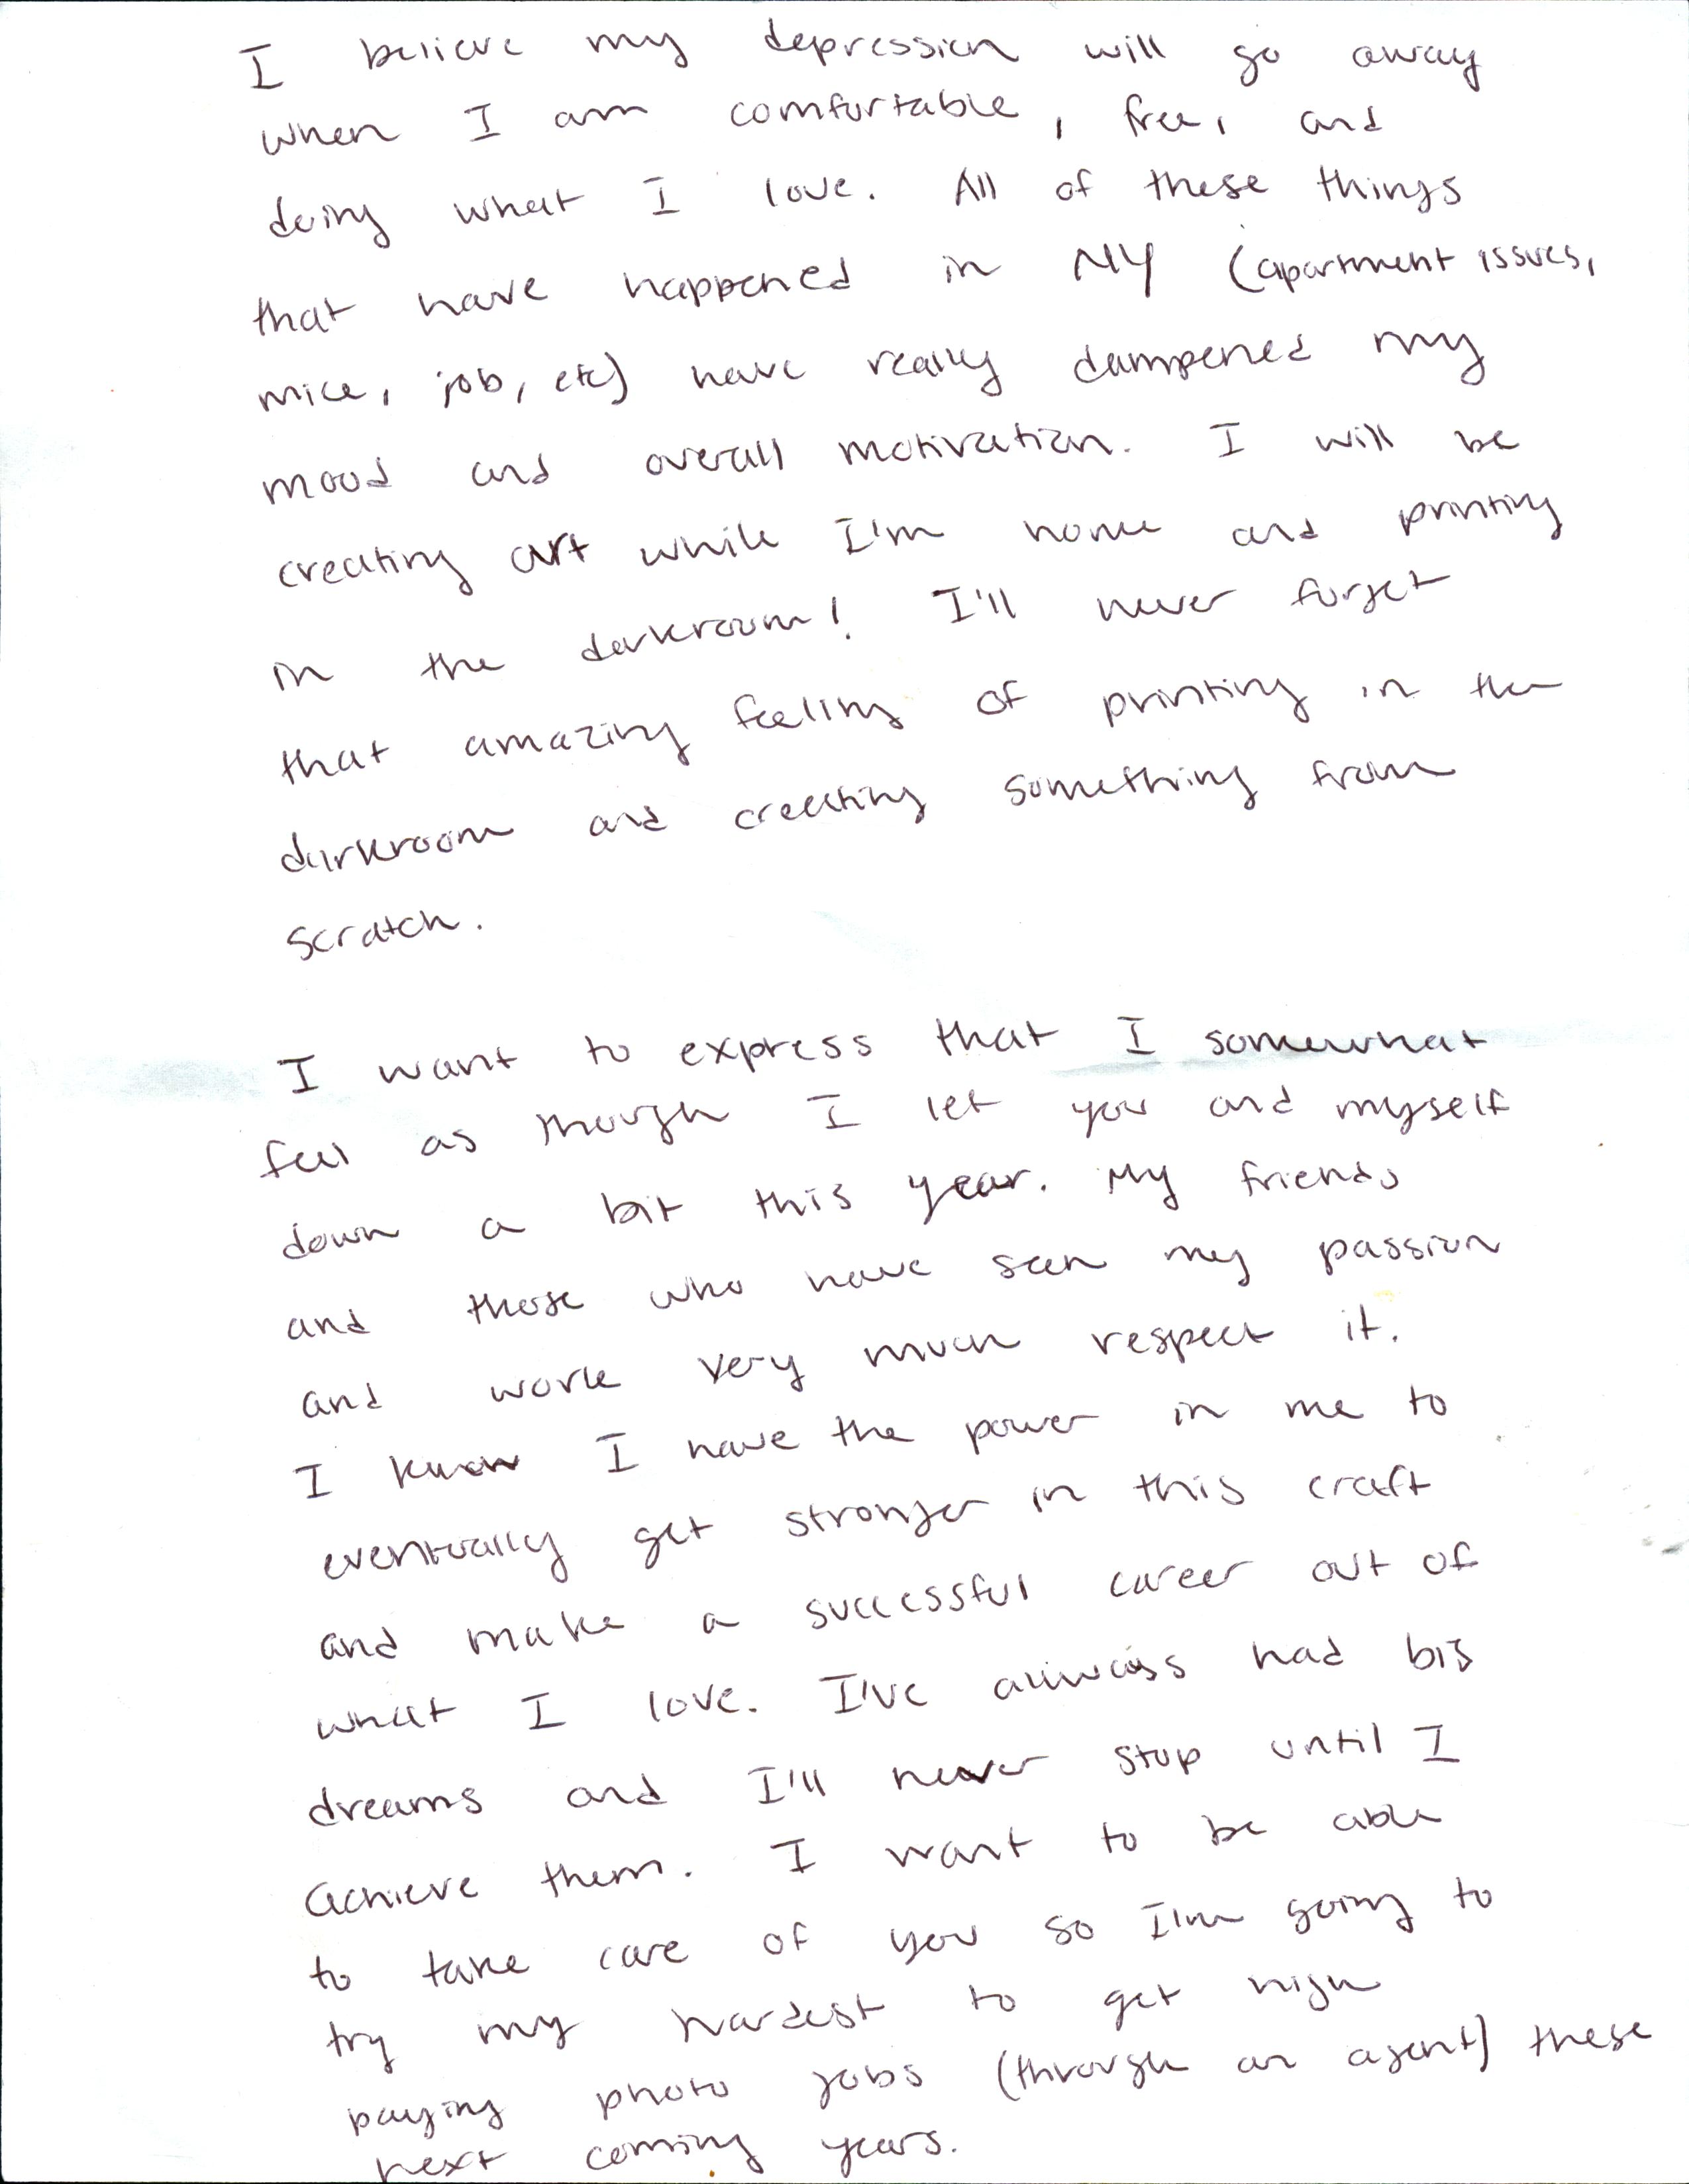 I believe my depression will go away
when I am comfortable, free, and
doing what I love. All of these things
that have happened in NY (apartment issues,
mice, job, etc) have really dampened my
mood and overall motivation. I will be
creating art while I'm home and printing
in the darkroom! I'll never forget
that amazing feeling of printing in the
darkroom and creating something from
scratch.
I want to express that I somewhat
feel as though I let you and myself
down a bit this year. My friends
and those who have seen my passion
and work very much respect it.
I know I have the power in me to
eventually get stronger in this craft
and make a successful career out of
what I love. I've always had big
dreams and I'll never stop until I
achieve them. I want to be able
to take care of you so I'm going to
try my hardest to get high
paying photo jobs (through an agent) these
next coming years.